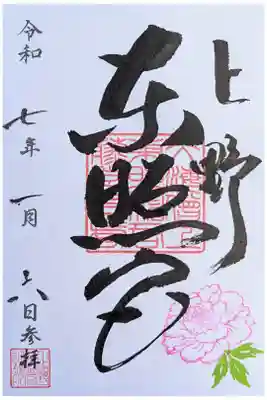 上野
東照宮
令和七年一月六日参拝